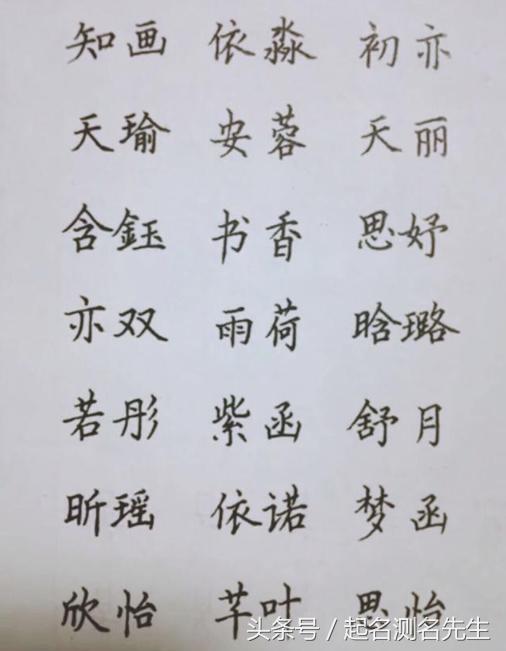 知画 依淼 初亦
天瑜 安蓉 天丽
含鈺 书香 思妤
亦双 雨荷 晗璐
若彤 紫函 舒月
昕瑶 依诺 梦函
欣怡 芊叶 思怡
头条号 / 起名测名先生